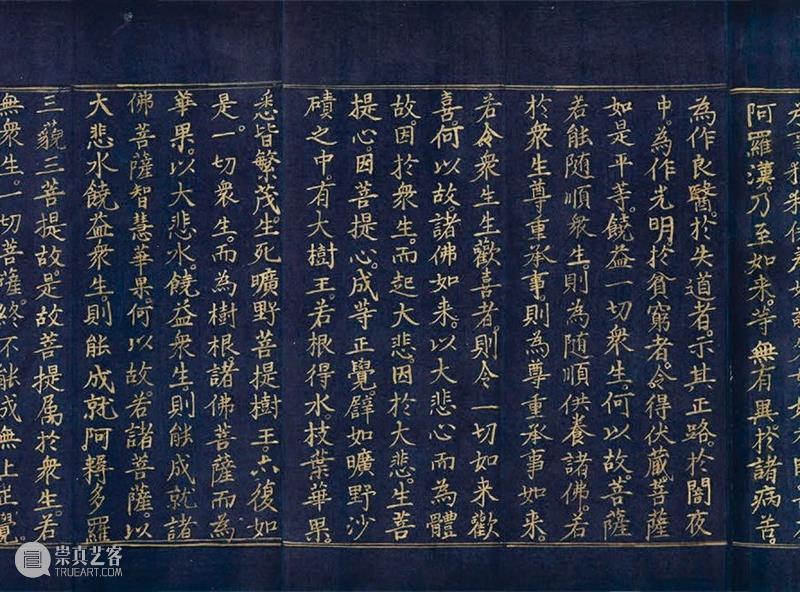 阿羅漢。乃至如來。等無有異。於諸病苦。
為作良醫。於失道者。示其正路。於闇夜
中。為作光明。於貧窮者。令得伏藏。菩薩
如是平等。饒益一切衆生。何以故。菩薩
若能随順衆生。則為随順供養諸佛。若
於衆生尊重承事。則為尊重承事如來。
若令衆生生歡喜者。則令一切如來歡
喜。何以故。諸佛如來。以大悲心而為體
故。因於衆生。而起大悲。因於大悲。生菩
提心。因菩提心。成等正覺。譬如曠野沙
磧之中。有大樹王。若根得水。枝葉華果。
悉皆繁茂。生死曠野。菩提樹王。亦復如
是。一切衆生。而為樹根。諸佛菩薩。而為
華果。以大悲水。饒益衆生。則能成就諸
佛菩薩智慧華果。何以故。若諸菩薩。以
大悲水饒益衆生。則能成就阿耨多羅
三藐三菩提故。是故菩提。属於衆生。若
無衆生。一切菩薩。終不能成無上正覺。
崇真艺客
TRUEART.COM